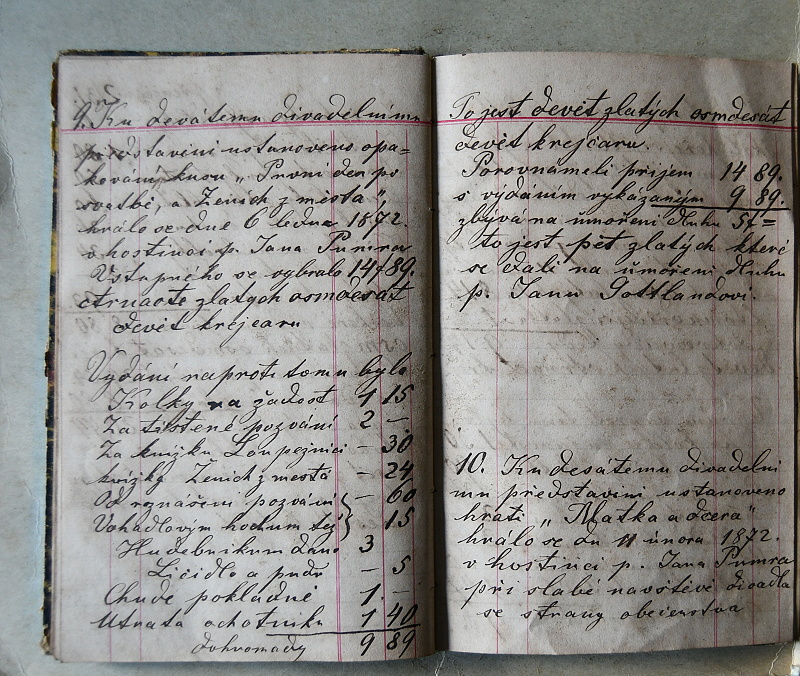 9. Ku devátemu divadelnímu
představini ustanoveno opa-
kování kusu „První den po
svatbě, a Ženich z města"
hrálo se dne 6 ledna 1872.
v hostinci p. Jana Pumra
Vstupného se vybralo 14 f 89.
čtrnacte zlatych osmdesát
devět krejcaru
Vydání naproti tomu bylo
Kolky na žadost 1 15
Za tištené pozvání 2 –
Za knížku Loupežníci – 30
knížka Ženich z mestá – 24
Od roznášení pozvání – 60
Vohadlovým hochum též . 15
Hudebníkum dano 3
Ličidlo a pudr – 5
Chudé pokladně 1 –
Utrata ochotníku 1 40
dohromady 9 89
To jest devět zlatých osmdesát
devět krejcaru.
Porovnámeli prijem 14 89.
s výdáním vykázaným 9 89.
zbývá na úmoření dluhu 5 f =
to jest pět zlatých které
se dali na úmoření dluhu
p. Janu Gottlandovi.
10. Ku desátemu divadelni
mu představini ustanoveno
hrati „Matka a dcera"
hrálo se dn 11 února 1872.
v hostinci p. Jana Pumra
při slabé navštěvě divadla
se strany obecenstva